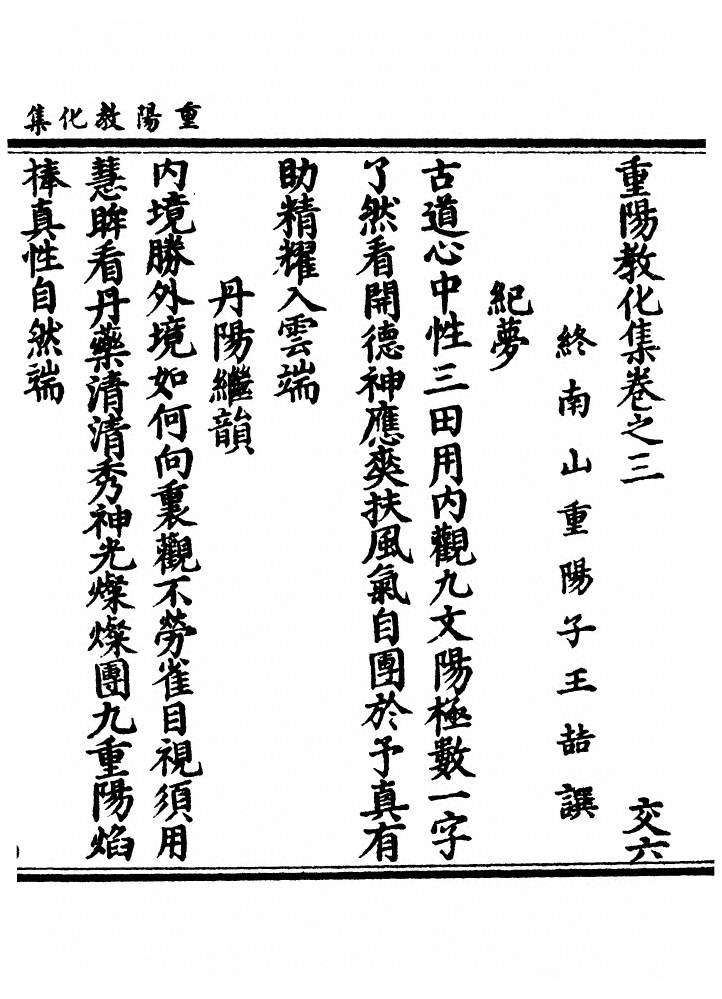 重陽教化集
重陽教化集卷之三 交六
終南山重陽子王嚞譔
紀夢
古道心中性三田用内觀九文陽極數一字
了然看開德神應爽扶風氣自團於予真有
助精耀入雲端
丹陽繼韻
内境勝外境如何向裏觀不勞雀目視須用
慧眸看丹藥清清秀神光燦燦團九重陽焰
棒真性自然端